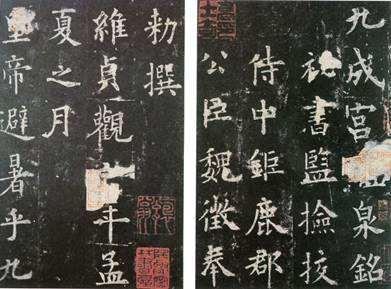 九成宮泉銘
秘書監撿挍
侍中鉅鹿郡
公臣魏徵奉
勑撰
維貞觀年孟
夏之月
皇帝避暑乎九